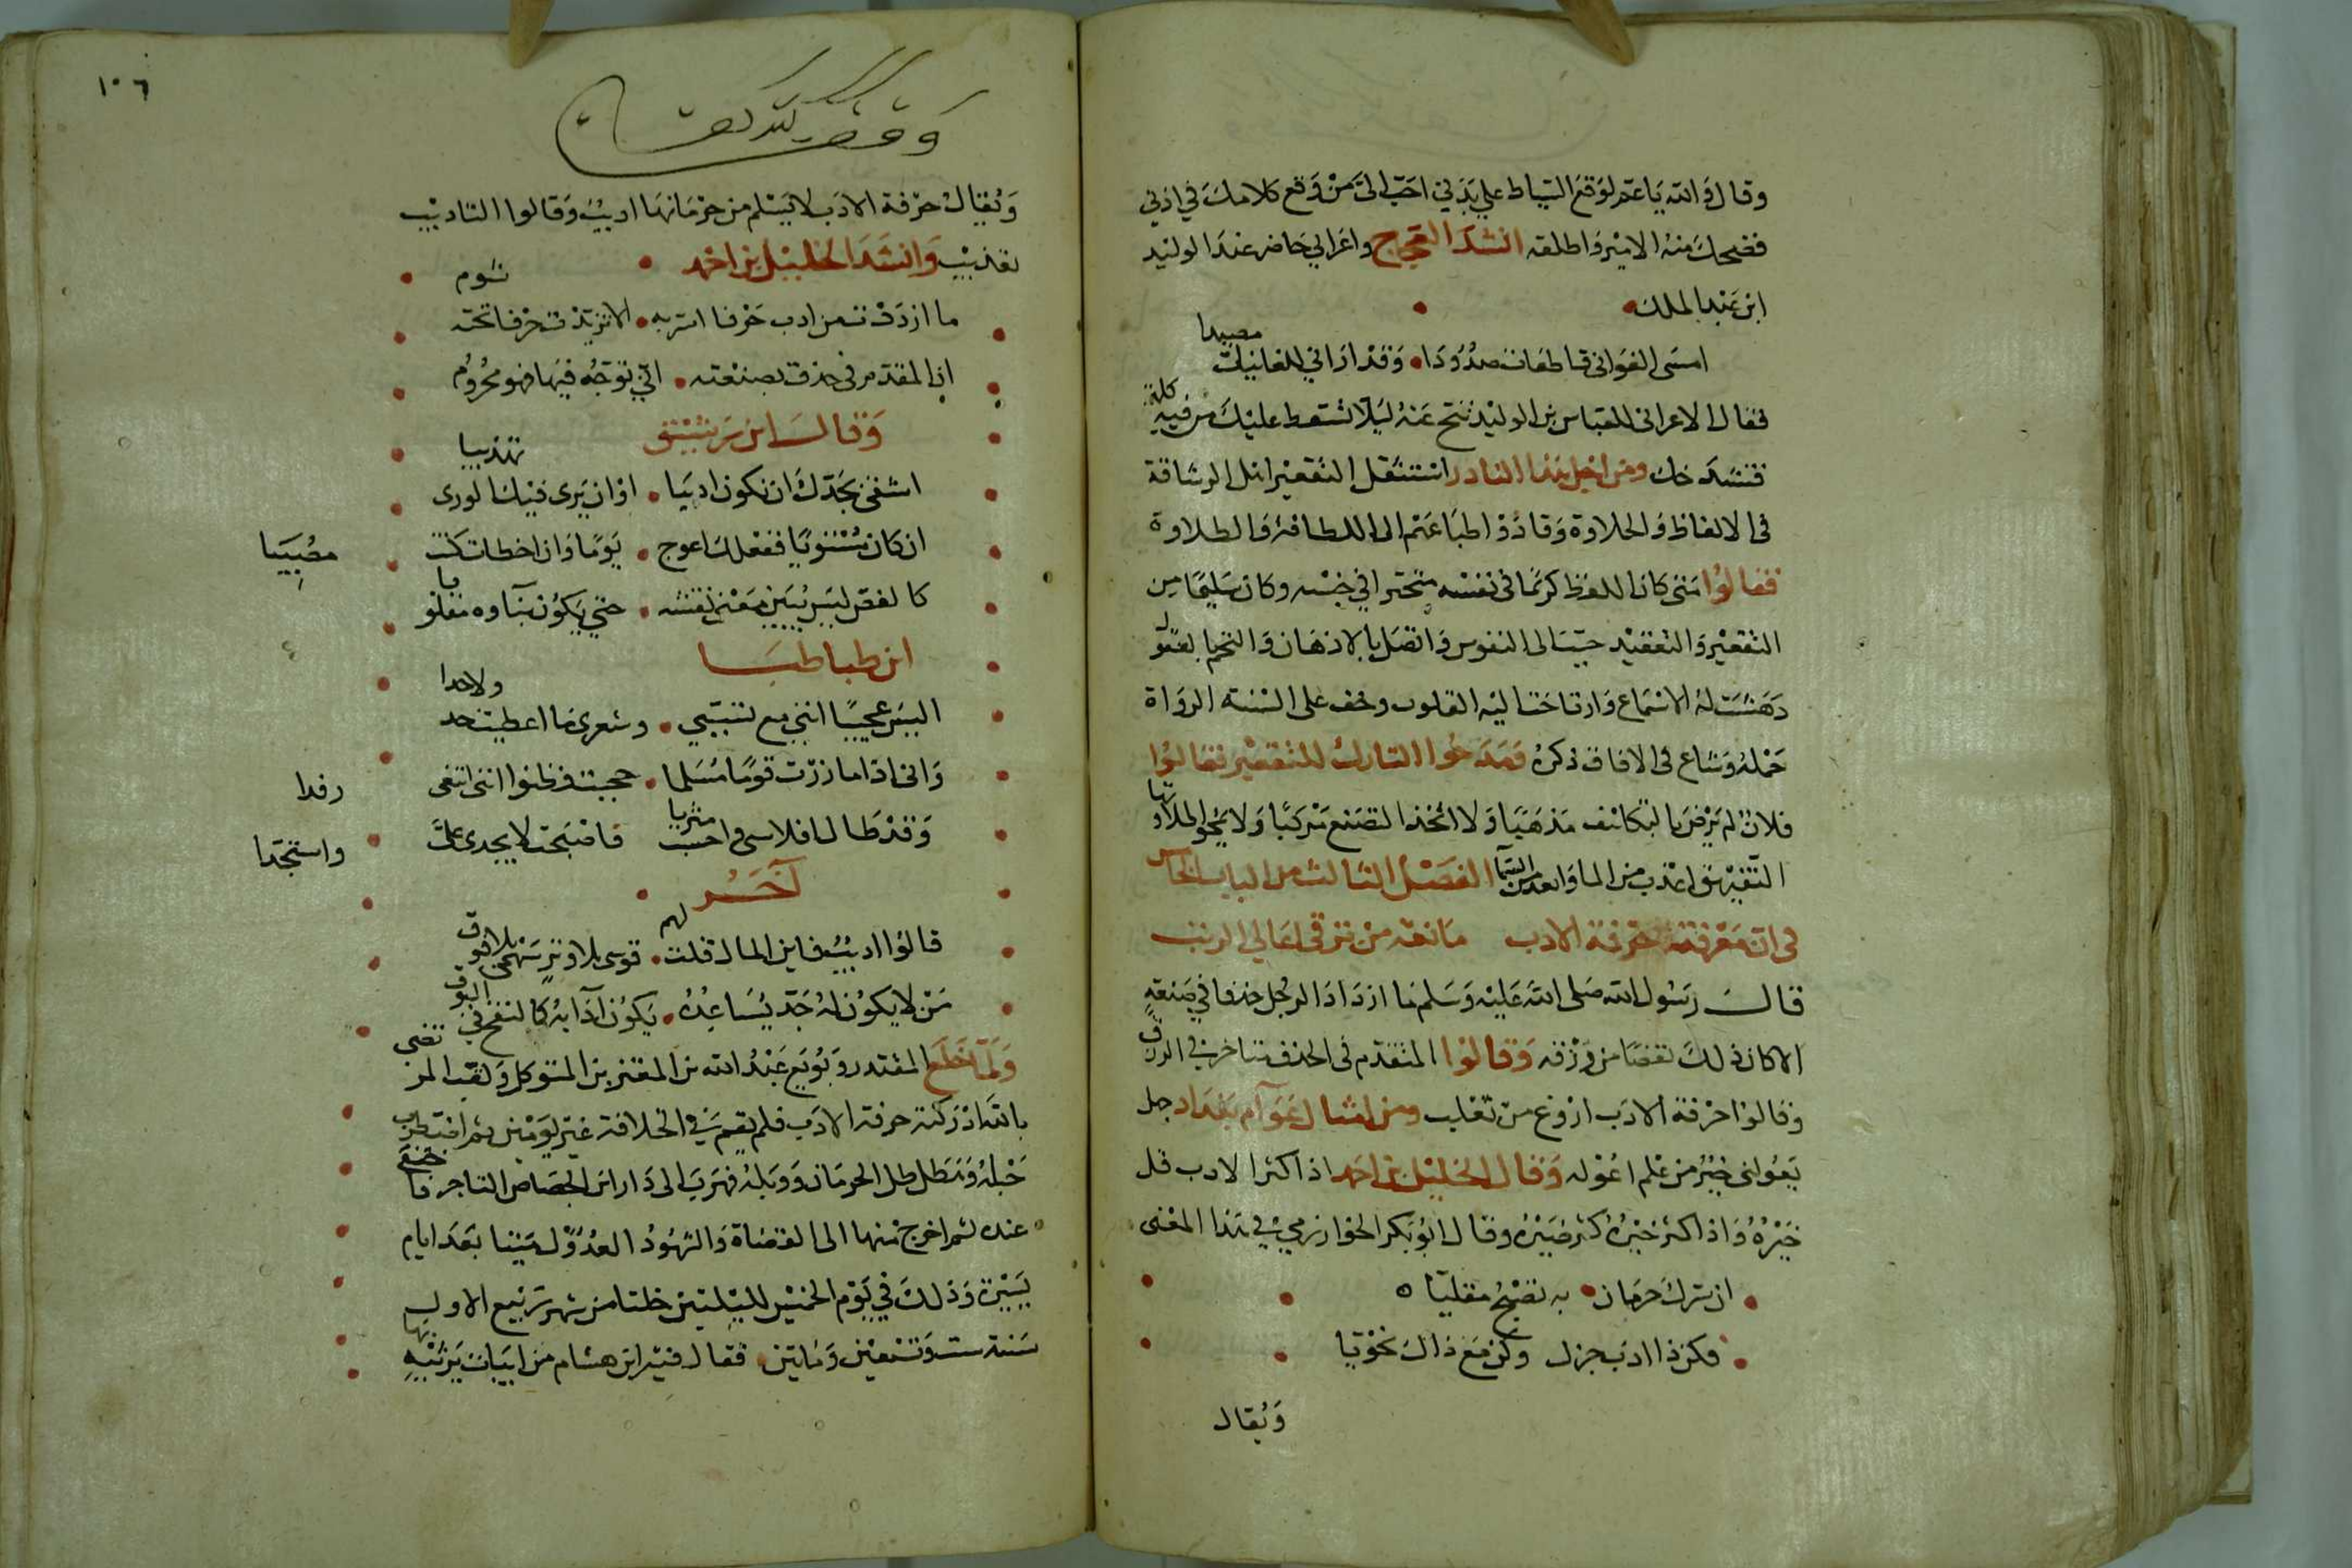 وقال والله يا عم لوقع السياط علي بدني احب الي من وقع كلامك في اذني
فضحك منه الامير واطلقه انشد العجاج واعرابي حاضر عند الوليد
ابن عبد الملك
امسى الغواني قاطعات صدودا وقد اراني للغانيات مصيدا
فقال الاعرابي للعباس بن الوليد تنح عنه ليلا تسقط عليك من فيه كلمة
فتشدخك ومن اجل هذا النادر استثقل التقعير اهل الرشاقة
في الالفاظ والحلاوة وقادوا طباعهم الى اللطافة والطلاوة
فقالوا متى كان اللفظ كريما في نفسه متخيرا في جنسه وكان سليما من
التقعير والتعقيد حبب الى النفوس واتصل بالاذهان والتحم بالعقول
وهشت له الاسماع وارتاحت اليه القلوب وخف على السنة الرواة
حمله وشاع في الافاق ذكره ومدحوا التارك للتقعير فقالوا
فلان لم يرض بالتكلف مذهبا ولا اتخذ التصنع مركبا ولا
التفيهق اعذب من الما وابعد من السما الفصل الثالث من الباب الخامس
في ان معرفة حرفة الادب مانعة من ترقي اعالي الرتب
قال رسول الله صلى الله عليه وسلم ما ازداد الرجل حذقا في صنعة
الا كان ذلك نقصا من رزقه وقالوا المتقدم في الحذق متاخر في الرزق
وقالوا حرفة الادب اروغ من ثعلب ومن امثال عوام بغداد جل
يعولني خير من علم اعوله وقال الخليل بن احمد اذا كثر الادب قل
خيره واذا كثر خيره كثر ضيره وقال ابو بكر الخوارزمي في هذا المعنى
ان سرك حرمان به تصبح مقليا
فكن ذا ادب جزل وكن مع ذاك نحويا
ويقال
١٠٦
ويقال حرفة الادب لا يسلم من حرمانها اديب وقالوا التاديب
تعذيب وانشد الخليل بن احمد
ما ازددت من ادب حرفا اسر به الا تزيدت حرفا تحته شوم
ان المقدم في حذق بصنعته انى توجه فيها فهو محروم
وقال ابن
اشقى بجدك ان تكون اديبا او ان يرى فيك الورى تهذيبا
ان كان مستويا ففعلك اعوج يوما وان اخطات كنت مصيبا
كالفص ليس يبين معنى نقشه حتى يكون بناوه مقلوبا
ابن طباطبا
اليس عجيبا انني مع تسببي وشعري ما اعطيت حمدا ولا
واني اذا ما زرت قوما مسلما حجبت وظنوا انني ابتغي رفدا
وقد طال افلاسي واحسب مثريا فاصبحت لا يجدى علي واستجدا
آخر
قالوا اديب فاين المال قلت لهم قوسي بلا وتر سهمي بلا فوق
من لا يكون له جد يساعده يكون آدابه كالنفخ في البوق
ولما خلع المقتدر وبويع عبد الله بن المعتز بن المتوكل ولقب المرتضى
بالله ادركته حرفة الادب فلم يقم في الخلافة غير يومين ثم اضطرب
حبله وهطل طل الحرمان ووبله فهرب الى دار ابن الجصاص التاجر فاختفى
عنده ثم اخرج منها الى القضاة والشهود العدول ميتا بعد ايام
يسيرة وذلك في يوم الخميس لليلتين خلتا من شهر ربيع الاول
سنة ست وتسعين ومايتين فقال فيه ابن هشام من ابيات يرثيه بها